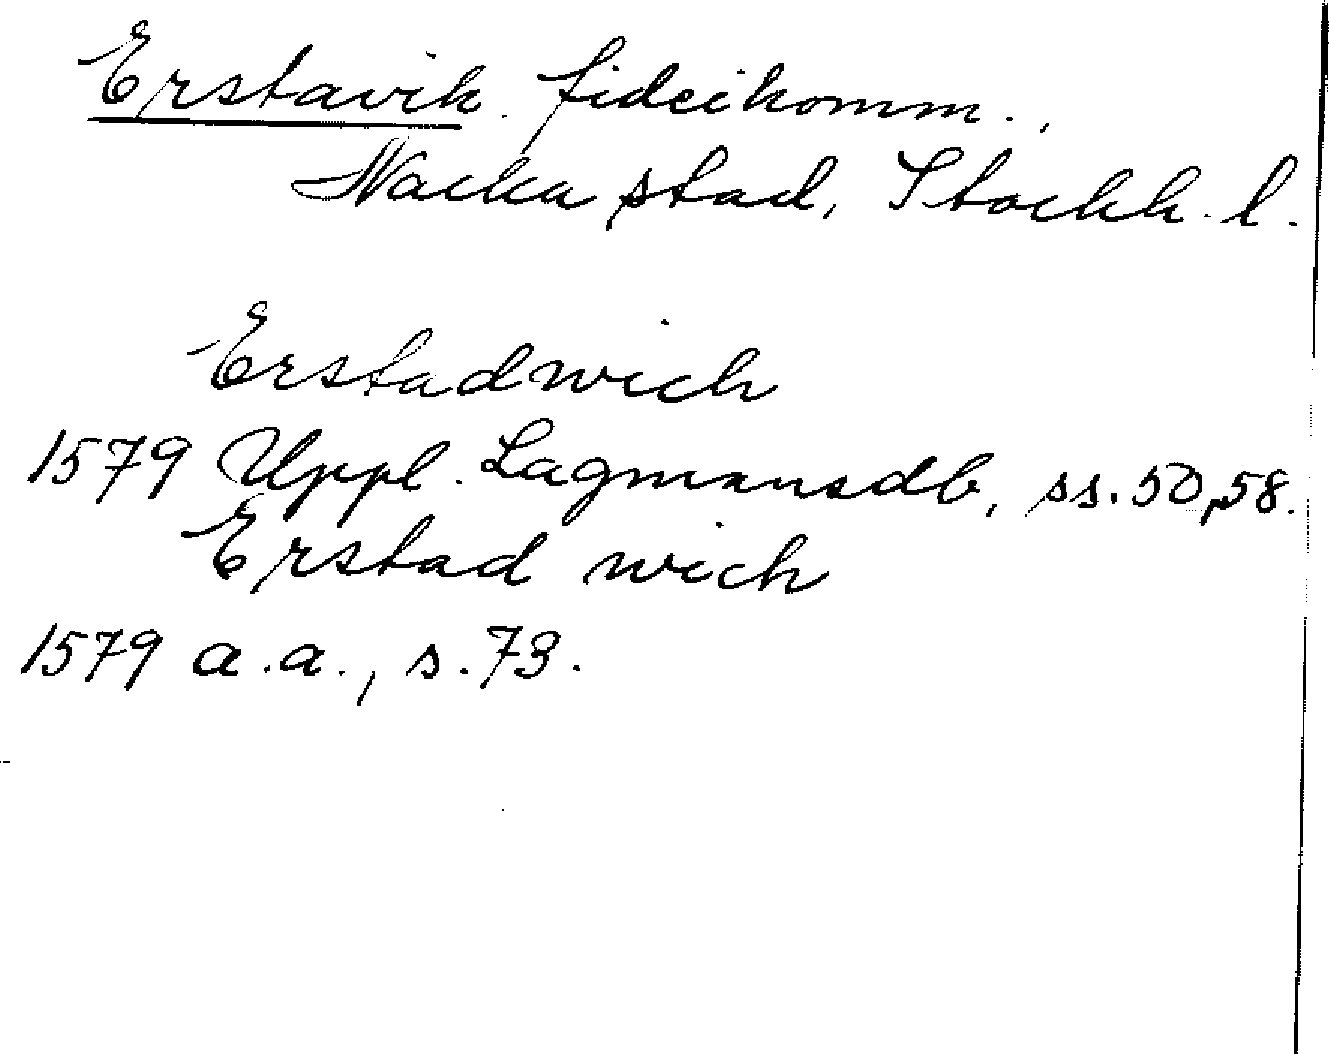 Erstavik. fideikomm.,
Nacka stad, Stockh. l.
Erstadwich
1579 Uppl. Lagmansdb, ss. 50, 58.
Erstad wich
1579 a.a., s. 73.